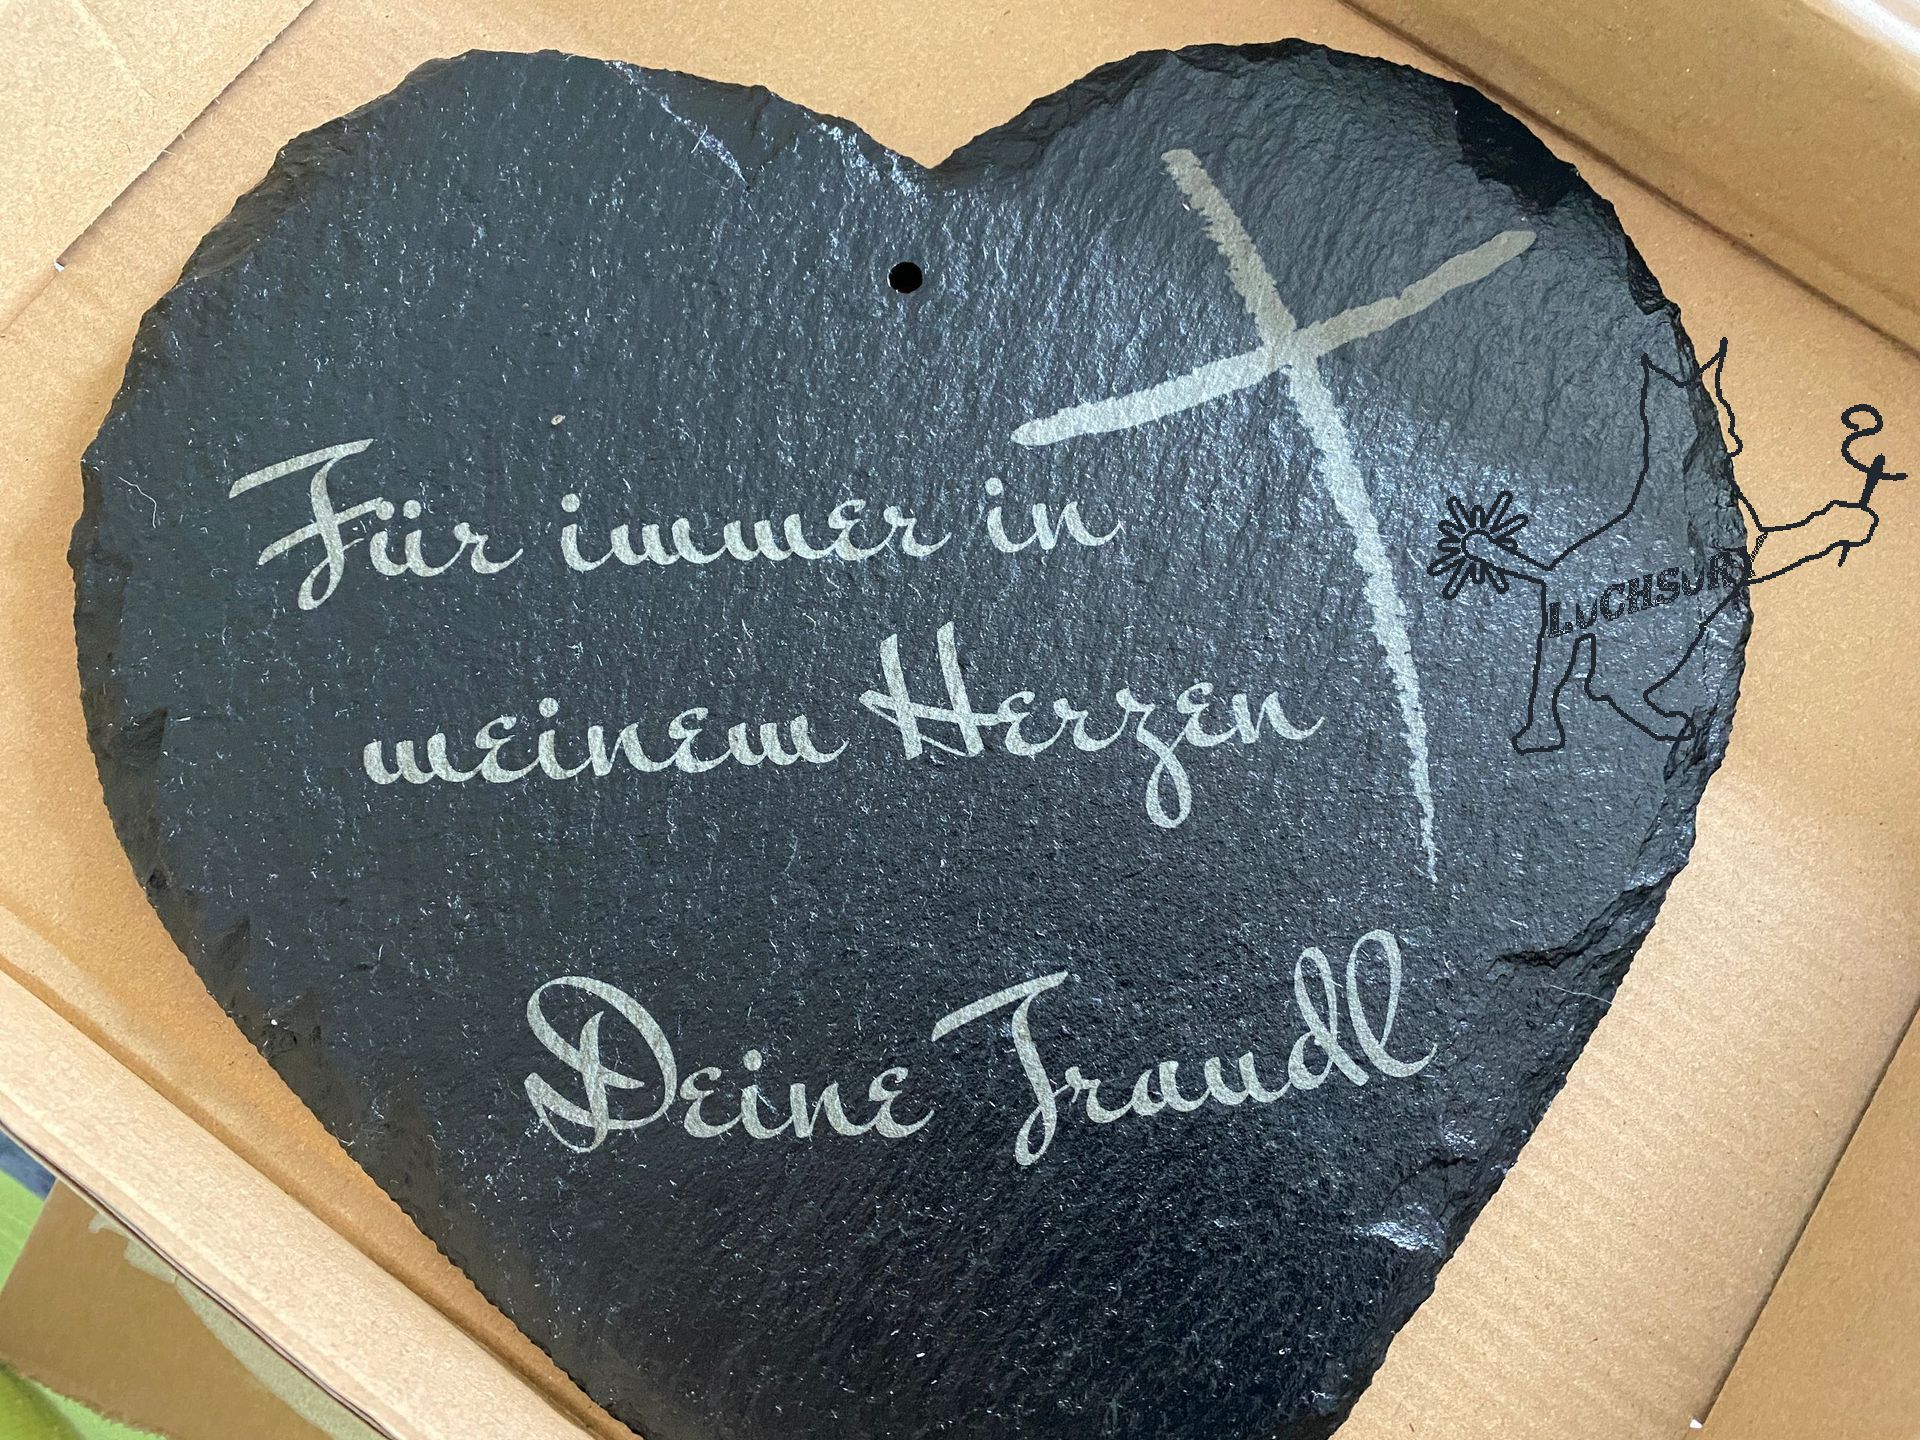 Für immer in
meinem Herzen
Deine Traudl
LUCHSURY